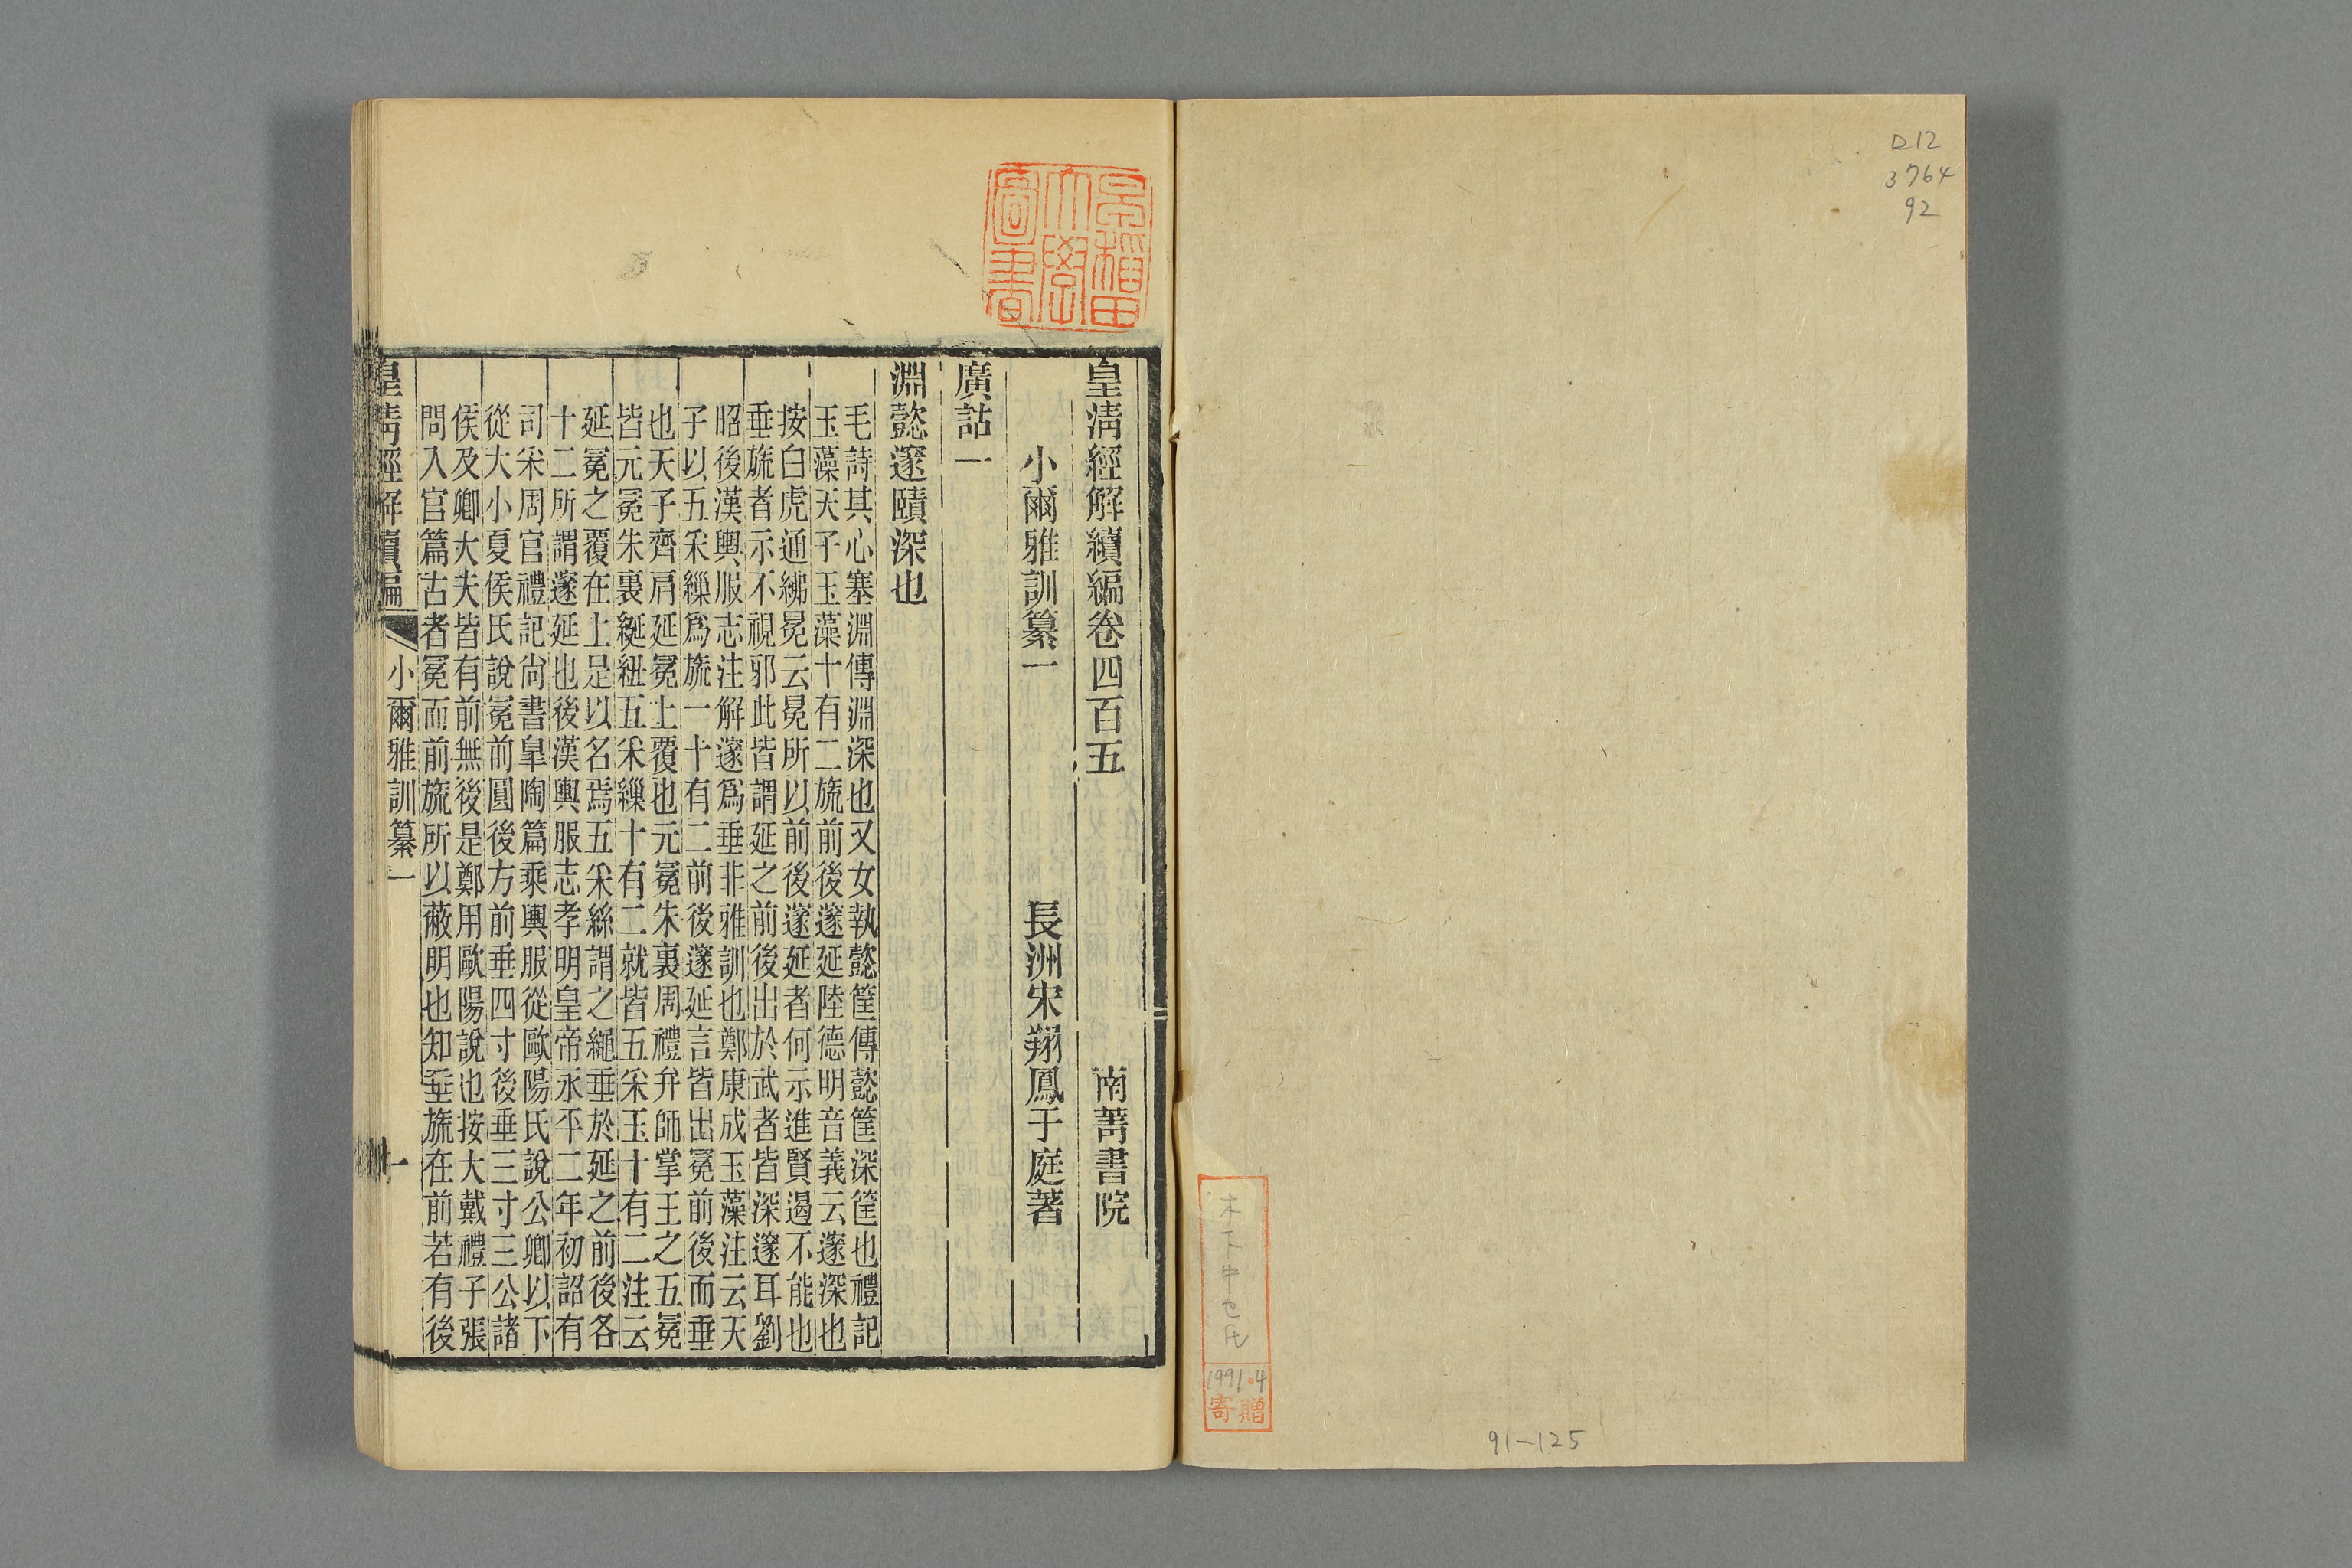 ロ12
3764
92
木下中也氏
1991.4
寄贈
91-125
早稲田
大學
圖書
皇淸經解續編卷四百五
南菁書院
小爾雅訓纂一
長洲宋翔鳳于庭著
廣詁一
淵懿邃賾深也
毛詩其心塞淵傳淵深也又女執懿筐傳懿筐深筐也禮記
玉藻天子玉藻十有二旒前後邃延陸德明音義云邃深也
按白虎通紼冕云冕所以前後邃延者何示進賢遏不能也
垂旒者示不視邪此皆謂延之前後出於武者皆深邃耳劉
昭後漢輿服志注解邃爲垂非雅訓也鄭康成玉藻注云天
子以五采繅爲旒一十有二前後邃延言皆出冕前後而垂
也天子齊肩延冕上覆也元冕朱裏周禮弁師掌王之五冕
皆元冕朱裏綖紐五采繅十有二就皆五采玉十有二注云
延冕之覆在上是以名焉五采絲謂之繩垂於延之前後各
十二所謂邃延也後漢輿服志孝明皇帝永平二年初詔有
司采周官禮記尙書皐陶篇乘輿服從歐陽氏說公卿以下
從大小夏侯氏說冕前圓後方前垂四寸後垂三寸三公諸
侯及卿大夫皆有前無後是鄭用歐陽說也按大戴禮子張
問入官篇古者冕而前旒所以蔽明也知垂旒在前若有後
皇淸經解續編
小爾雅訓纂一
一